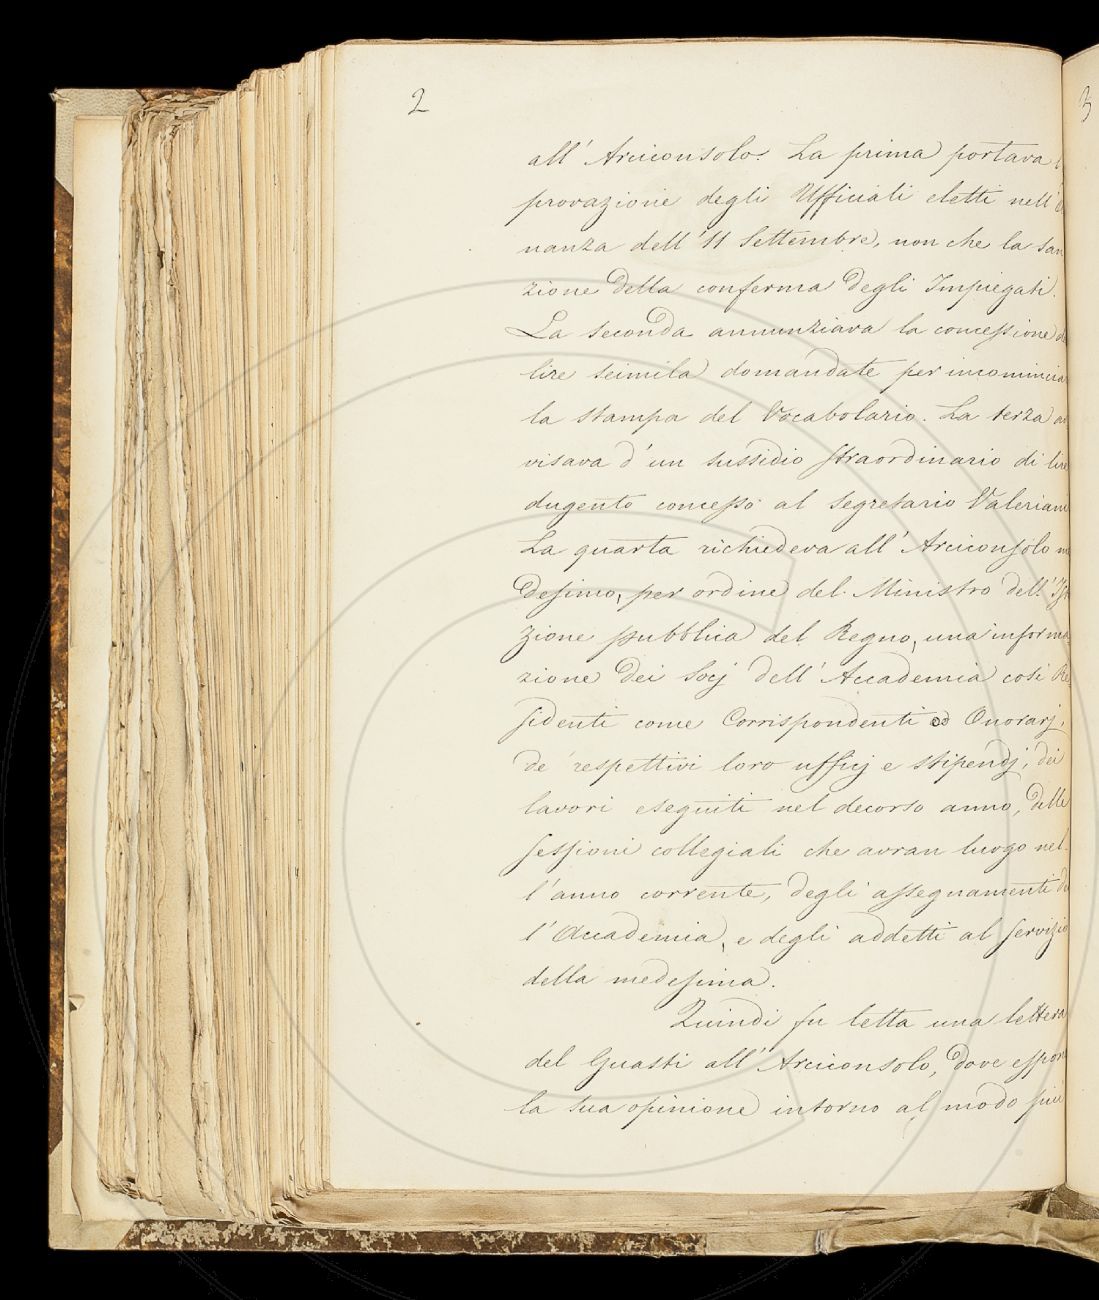 2
3
all' Arciconsolo. La prima portava
provazione degli Ufficiali eletti nell'
nanza dell' 11 Settembre, non che la san
zione della conferma degli Impiegati.
La seconda annunziava la concessione
lire seimila domandate per incomincia
la stampa del Vocabolario. La terza
visava d'un sussidio straordinario di lire
dugento concesso al segretario Valeriani
La quarta richiedeva all' Arciconsolo
desimo, per ordine del Ministro dell'
zione pubblica del Regno, una informa
zione dei Socj dell' Accademia così Re
sidenti come Corrispondenti ed Onorarj,
de' respettivi loro ufficj e stipendj, dei
lavori eseguiti nel decorso anno, delle
sessioni collegiali che avran luogo nel
l'anno corrente, degli assegnamenti
l'Accademia, e degli addetti al servizio
della medesima.
Quindi fu letta una lettera
del Guasti all' Arciconsolo, dove espone
la sua opinione intorno al modo più